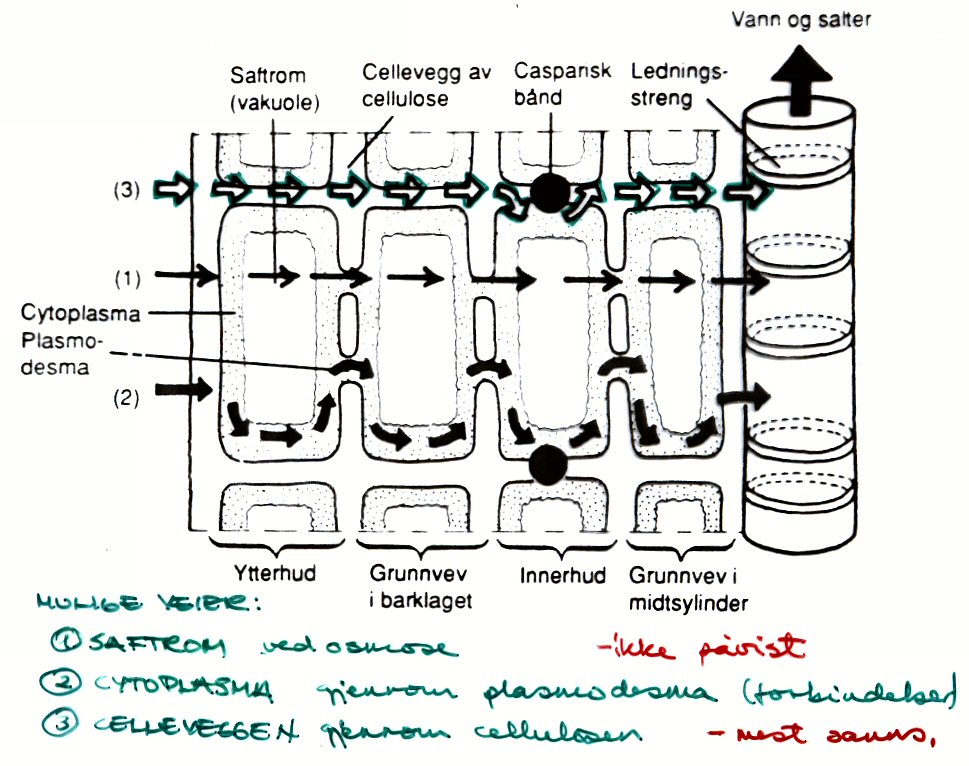 Vann og salter
Saftrom
(vakuole)
Cellevegg av
cellulose
Casparisk
bånd
Lednings-
streng
(3)
(1)
Cytoplasma
Plasmo-
desma
(2)
Ytterhud
Grunnvev
i barklaget
Innerhud
Grunnvev i
midtsylinder
MULIGE VEIER:
① SAFTROM ved osmose -ikke påvist
② CYTOPLASMA gjennom plasmodesma (forbindelser)
③ CELLEVEGGEN gjennom cellulosen - mest sanns.